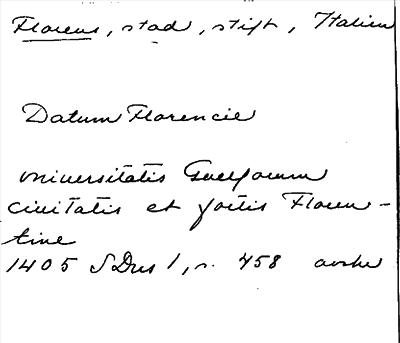 Florens, stad, stift, Italien
Datum Florencie
vniuersitatis Guelforum
ciuitatis et partis Floren-
tine
1405 SDns 1, n. 458 avskr